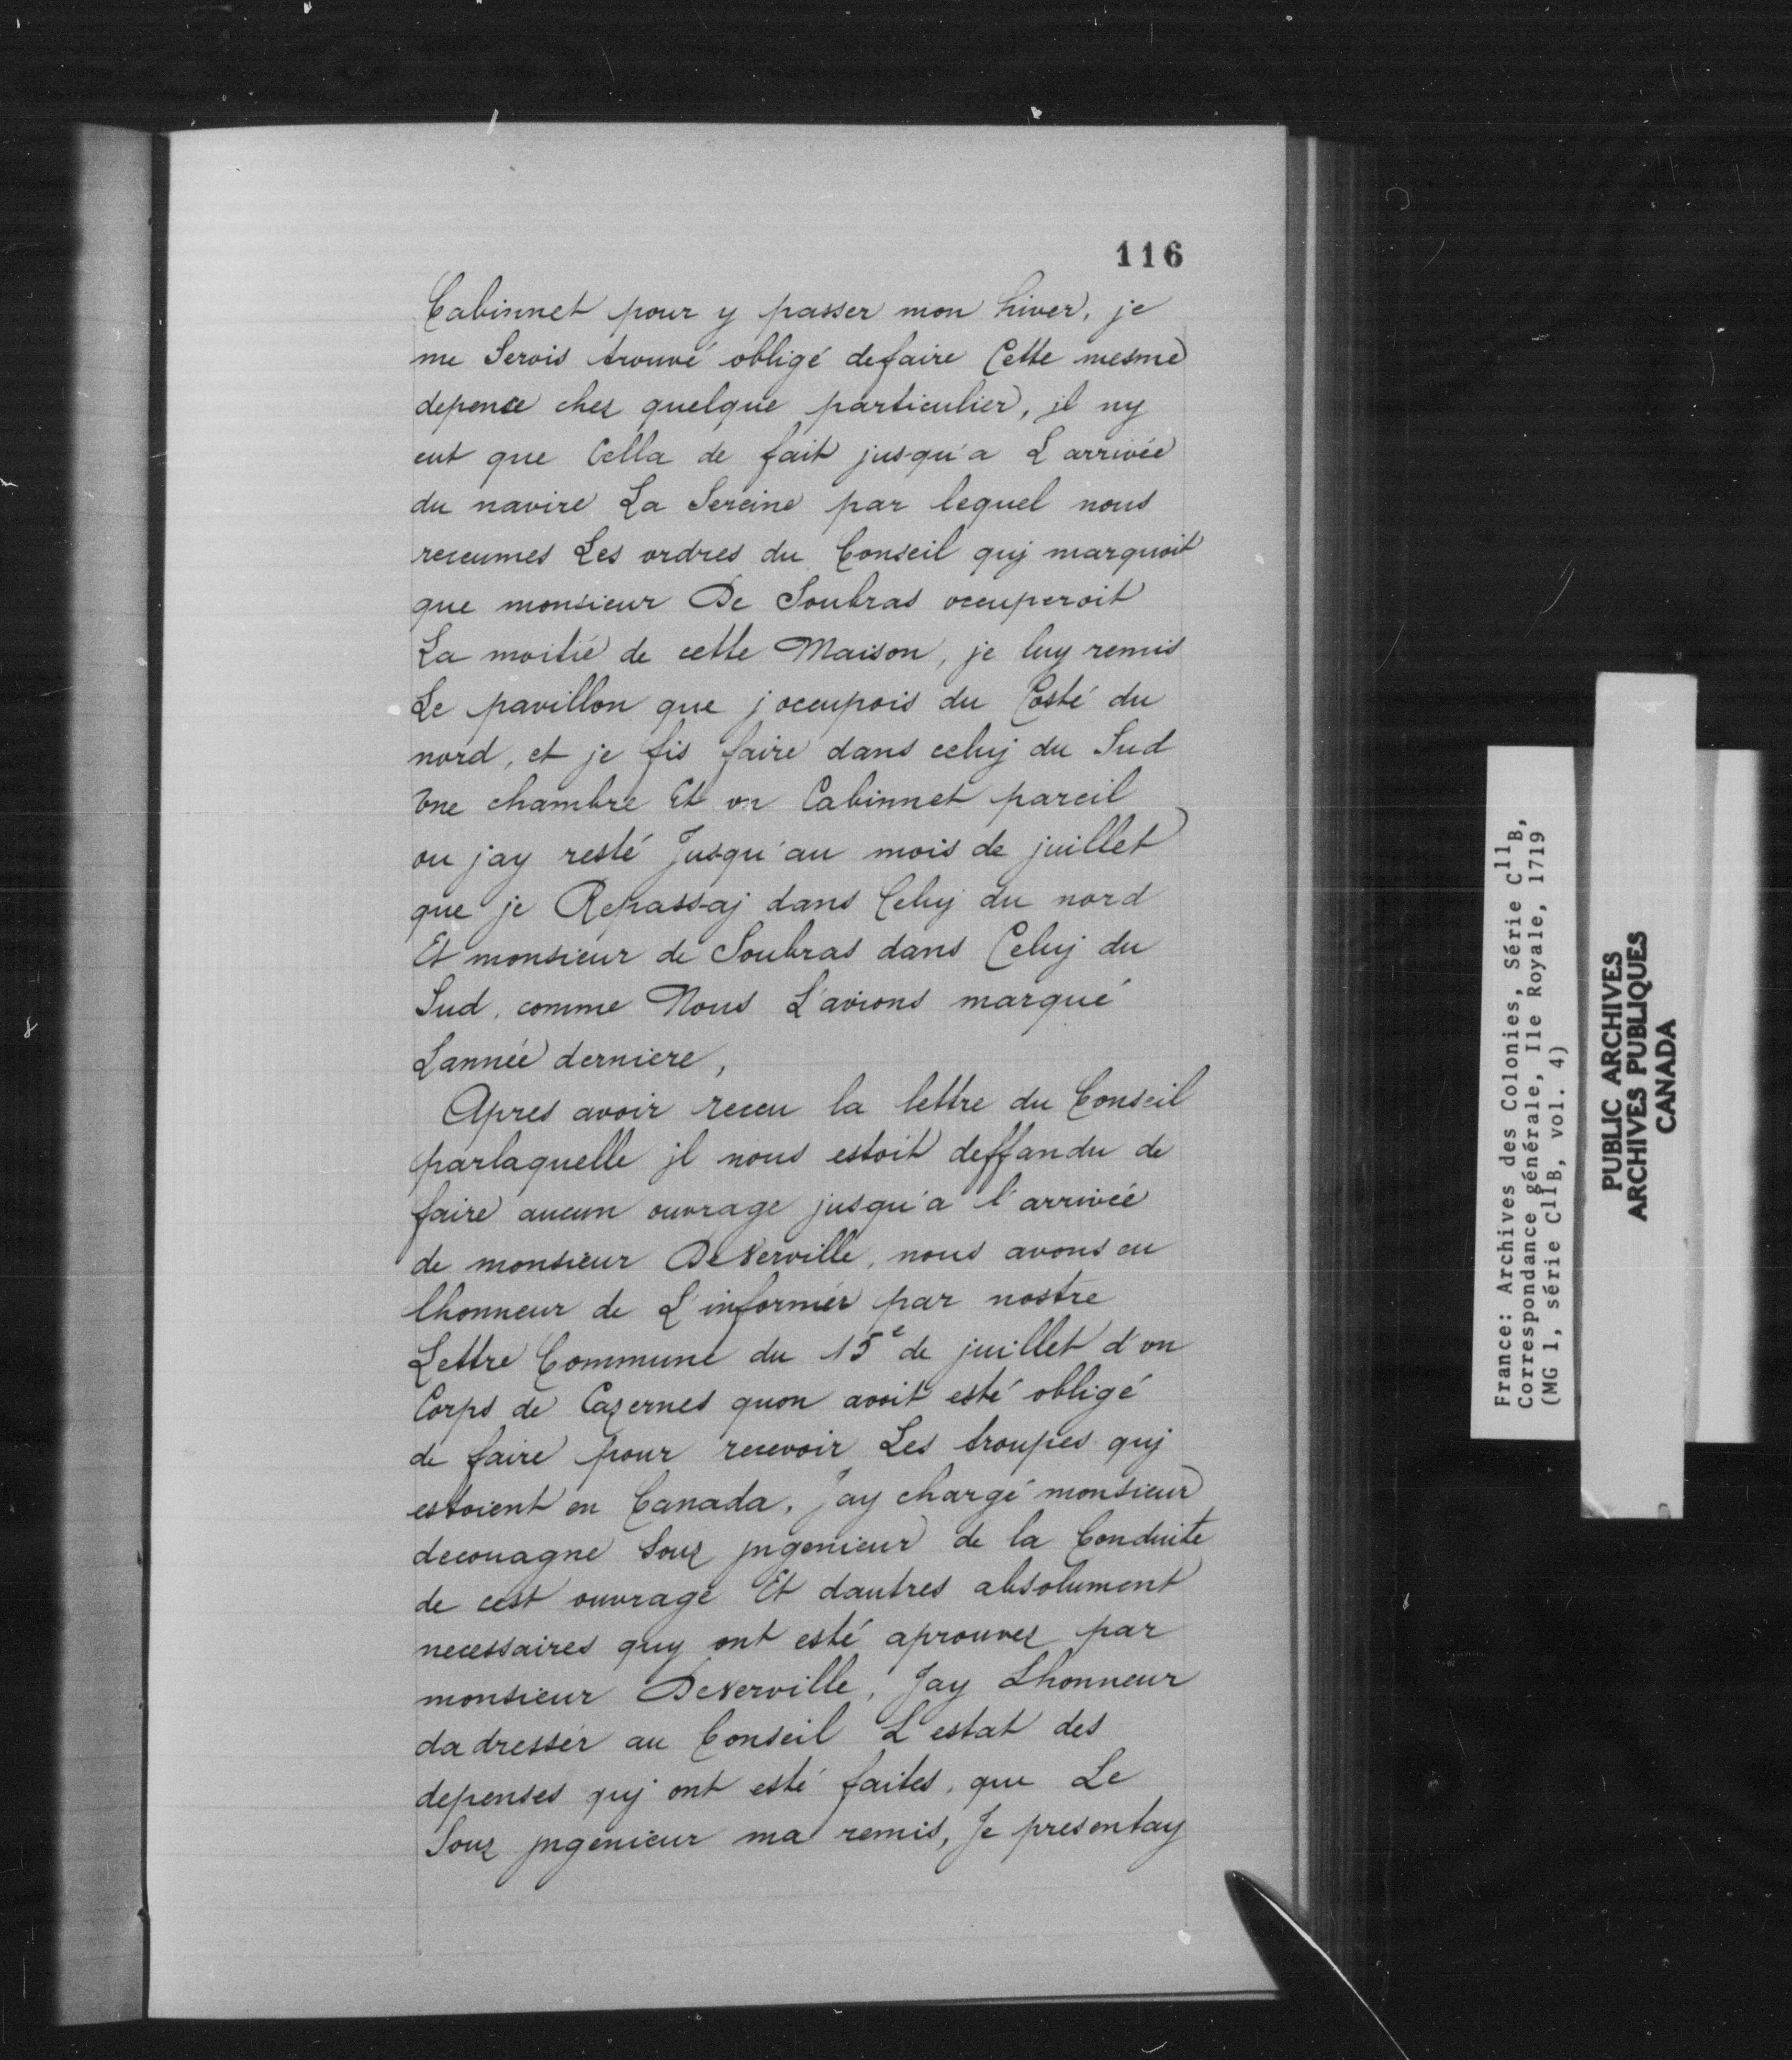 116
Cabinnet pour y passer mon hiver, je
me Serois trouvé obligé defaire Cette mesme
depence chez quelque particulier, jl ny
eut que Cella de fait jusqu'a L arrivée
du navire La Sereine par lequel nous
receumes Les ordres du Conseil quj marquoit
que monsieur De Soubras occuperoit
La moitié de cette Maison, je luy remis
Le pavillon que j occupois du Costé du
nord, et je fis faire dans celuj du Sud
vne chambre Et vn Cabinnet pareil
ou jay resté Jusqu'au mois de juillet
que je Repassaj dans Celuj du nord
Et monsieur de Soubras dans Celuj du
Sud, comme Nous L'avions marqué
Lannée derniere,
Apres avoir receu la lettre du Conseil
parlaquelle jl nous estoit deffandu de
faire aucun ouvrage jusqu'a l'arrivée
de monsieur DeVerville, nous avons eu
lhonneur de L'informer par nostre
Lettre Commune du 15e de juillet d'vn
Corps de Cazernes quon avoit esté obligé
de faire pour recevoir Les troupes quj
estoient en Canada, Jay chargé monsieur
decouagne Souz jngenieur de la Conduite
de cest ouvrage Et dautres absolument
necessaires quy ont esté aprouvez par
monsieur DeVerville, Jay Lhonneur
dadresser au Conseil L'estat des
depenses quj ont esté faites, que Le
Souz jngenieur ma remis, Je presentay
France: Archives des Colonies, Série C11B,
Correspondance générale, Ile Royale, 1719
(MG 1, série C11B, vol. 4)
PUBLIC ARCHIVES
ARCHIVES PUBLIQUES
CANADA